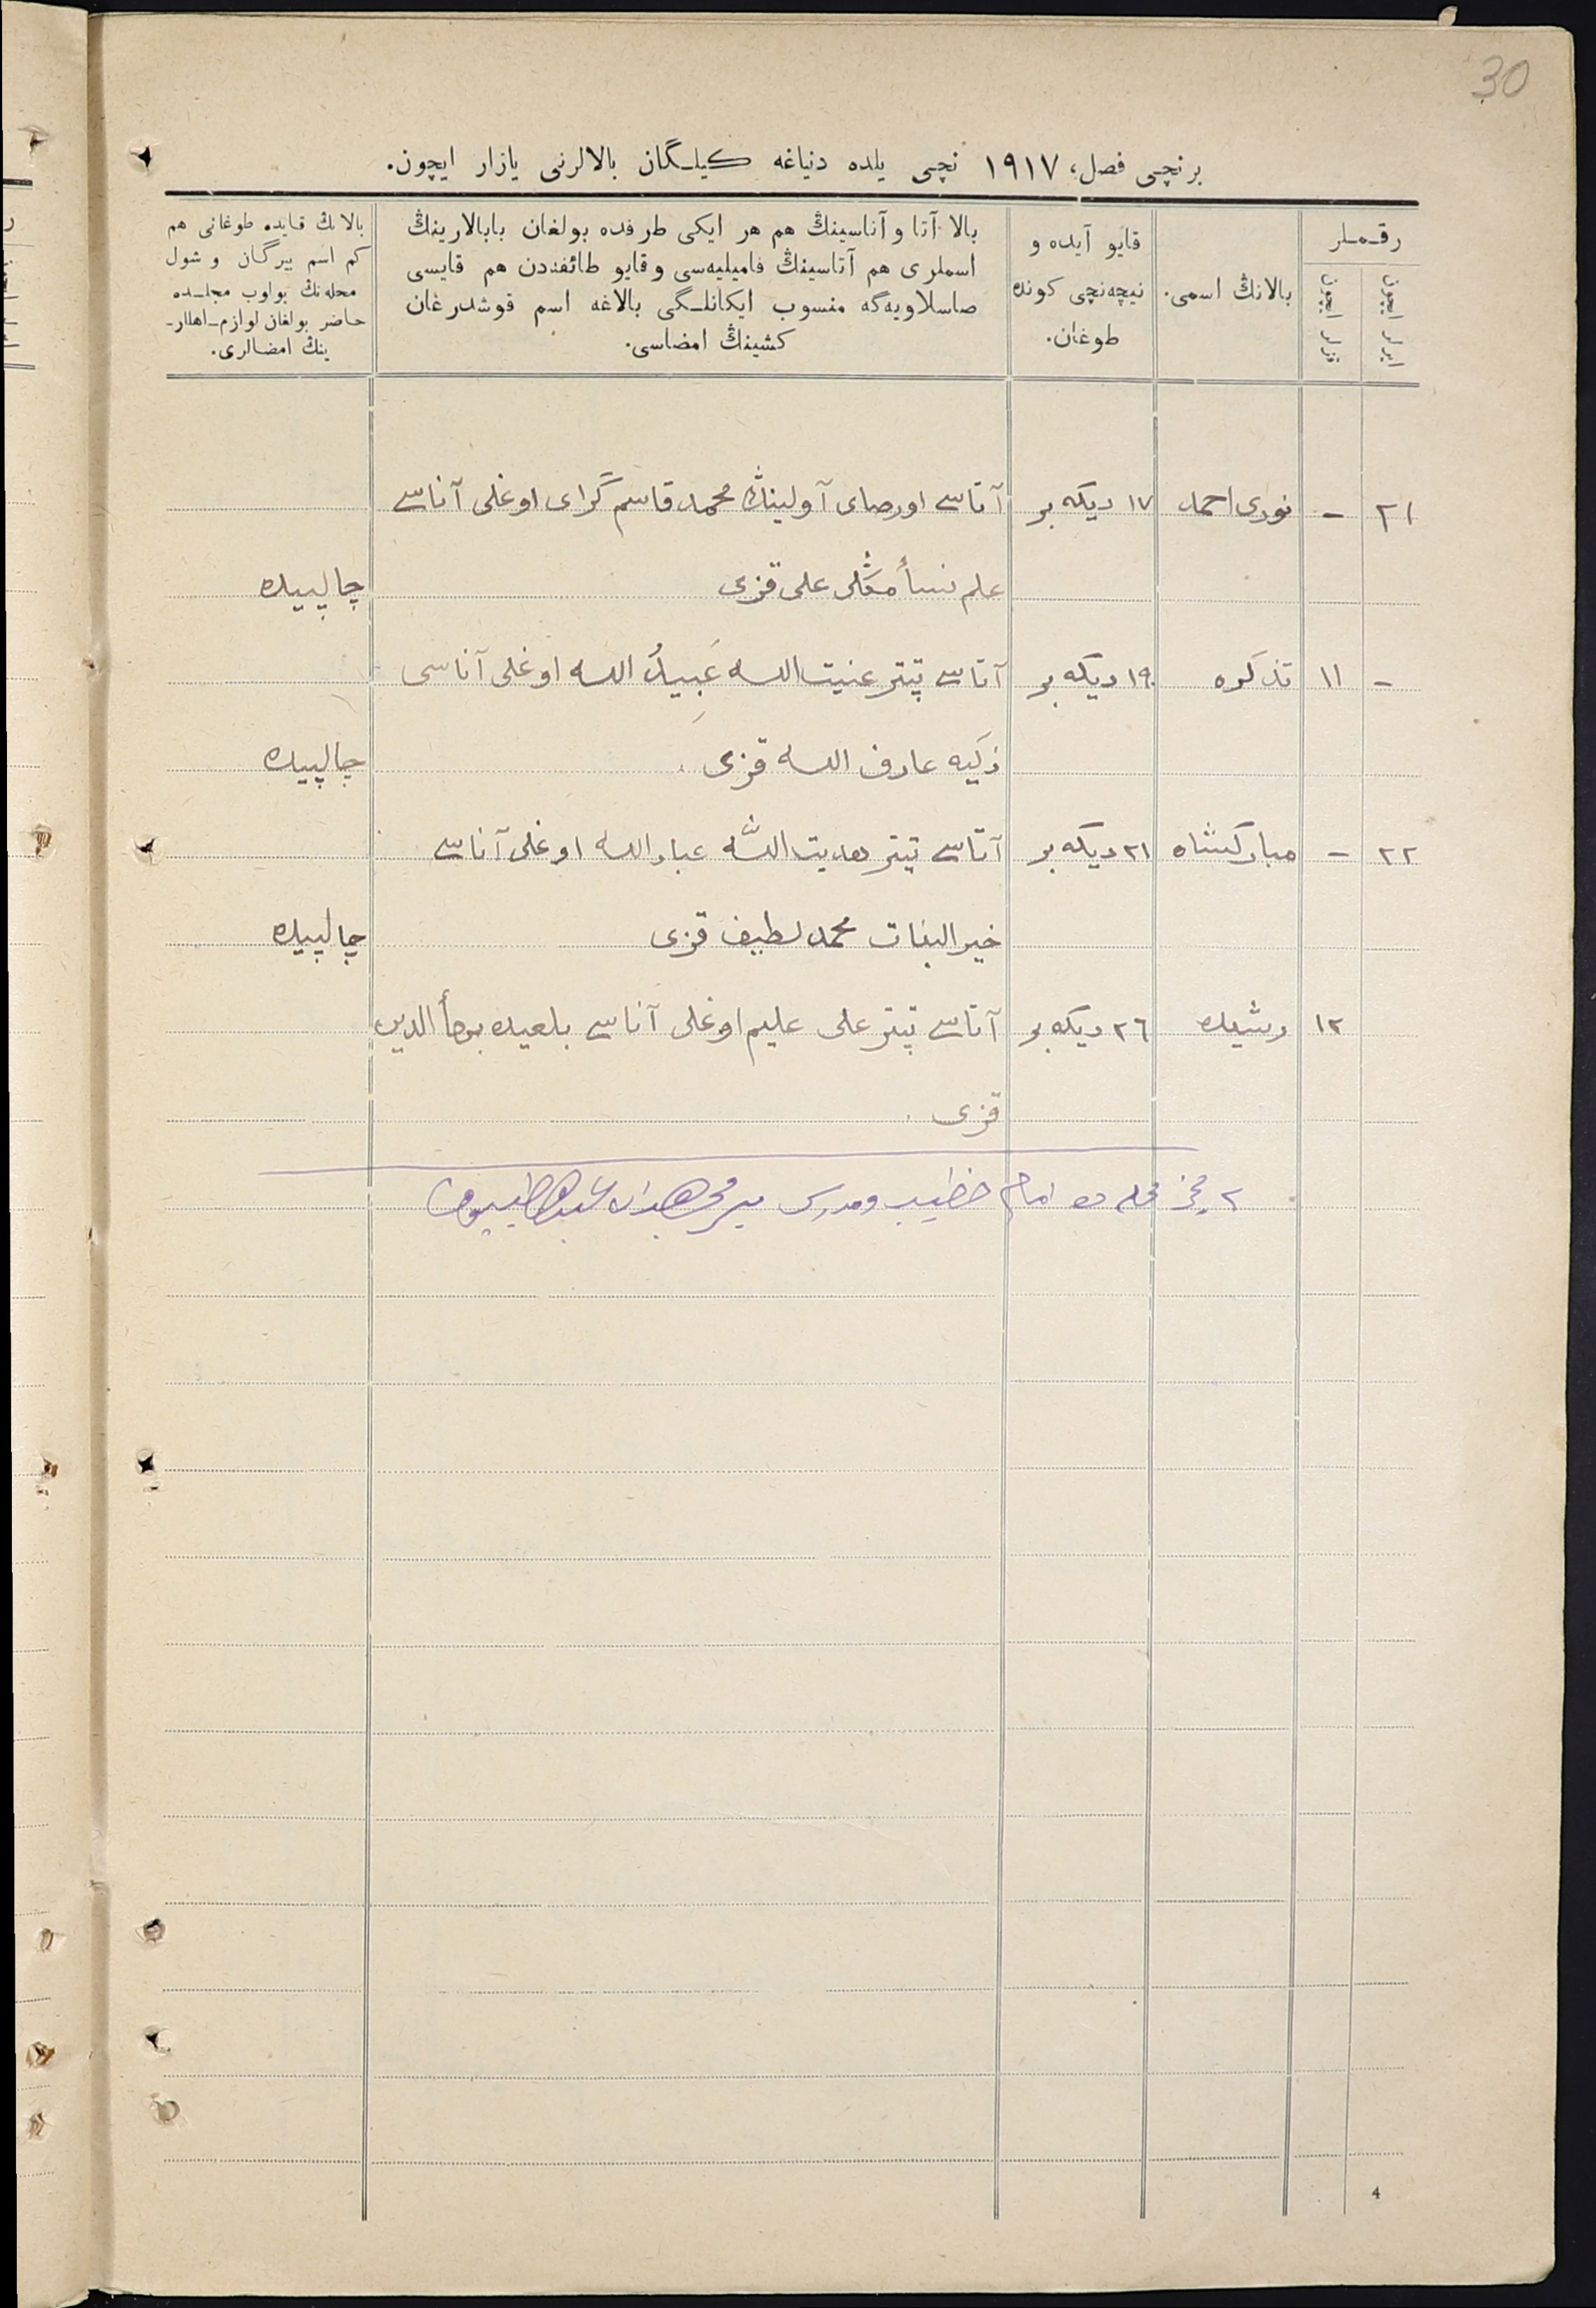 30
برنچی فصل، ١٩١٧ نچی یلده دنیاغه كیلـگان بالالرنی یازار ایچون.
رقـملر
ایرلر ایچون
قزلر ایچون
بالانڭ اسمی.
قایو آیده و
نیچه‌نچی كونده
طوغان.
بالا آتا و آناسینڭ هم هر ایكی طرفده بولغان بابالارینڭ
اسملری هم آتاسینڭ فامیلیه‌سی و قایو طائفه‌دن هم قایسی
صاسلاویه‌گه منسوب ایكانلـگی بالاغه اسم قوشدرغان
كشینڭ امضاسی.
بالانڭ قایده طوغانی هم
كم اسم بیرگان و شول
محله‌نڭ بولوب مجلـده
حاضر بولغان لوازم-اهللر-
ینڭ امضالری.
٢١ – نوری احمد ١٧ دیكه بر آتاسے اورصای آولینڭ محمد قاسم گرای اوغلی آناسے
علم نسأ علی قزی چالپیده
– ١١ تذكره ١٩ دیكه بر آتاسے تپتر عنیت الله عَبیدُ الله اوغلی آناسی
زكیه عارف الله قزی. چالپیده
٢٢ – مباركشاه ٢١ دیكه بر آتاسے تپتر هدیت اللّٰه عباد الله اوغلی آناسے
خیر البنات محمد لطیف قزی چالپیده
١٢ رشیده ٢٦ دیكه بر آتاسے تپتر علی علیم اوغلی آناسے
قزی.
٢ محله ده امام خطیب و مدرس
4